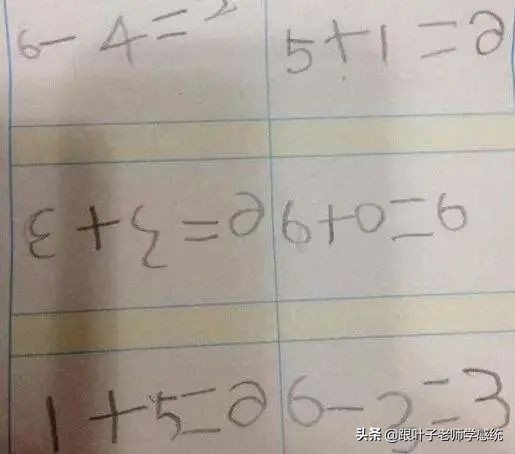 6-4=2 5+1=6
3+3=6 6+0=6
1+5=6 6-3=3
头条 @跟叶子老师学感统